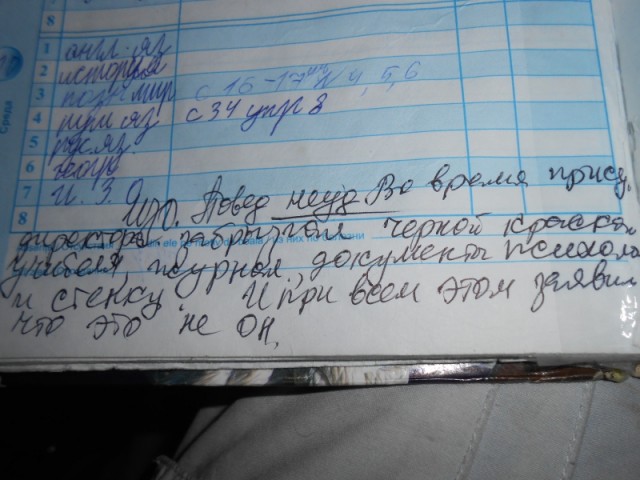 8
1 англ. яз.
2 история
3 позн. мир с 16-17 4, 5, 6
4 рум яз. с 34 упр 8
5 рус. яз.
6 геогр
7 И. З. О.
8 ИЗО. Повед неуд Во время прису.
директора забрызгал черной краской
учителя, журнал, документы психоло
и стенку. И при всем этом заявил
что это не он.
Среда